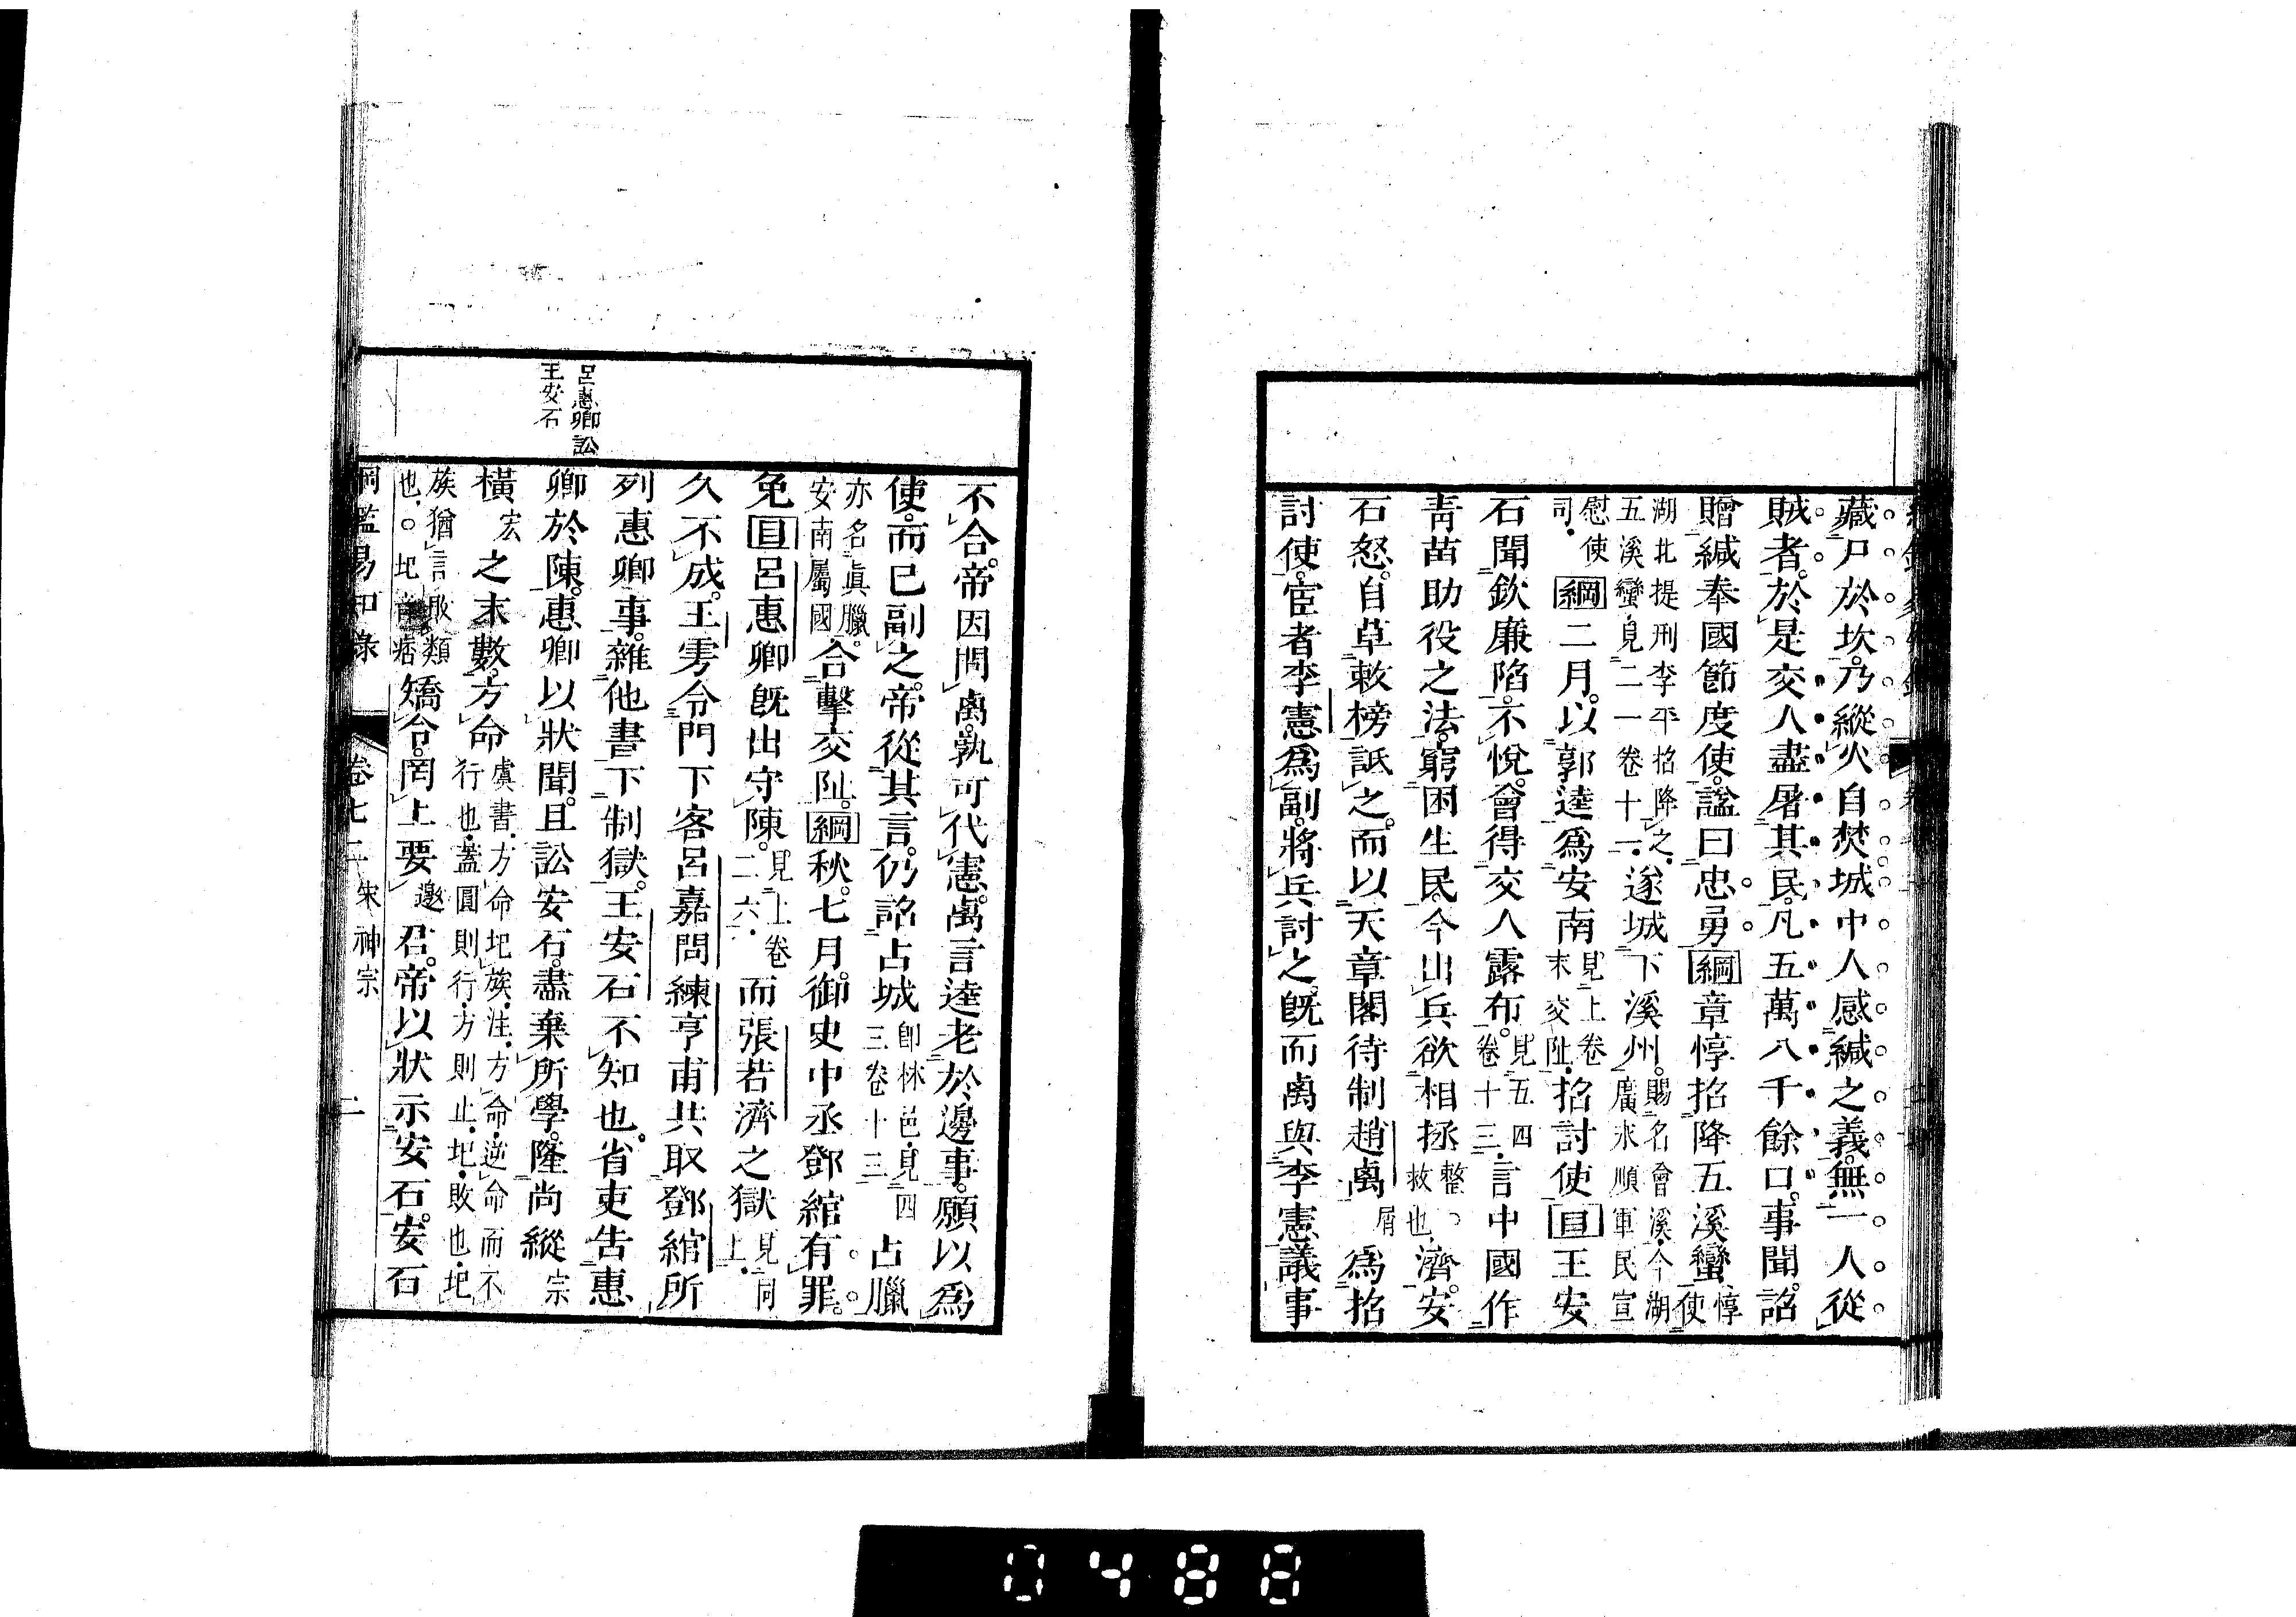 藏尸於坎。乃縱火自焚。城中人感緘之義。無一人從
賊者。於是交人盡屠其民。凡五萬八千餘口。事聞。詔
贈緘奉國節度使。諡曰忠勇。綱章惇招降五溪蠻。惇使
湖北提刑李平招降之.
五溪蠻.見二一卷十一.遂城下溪州。賜名會溪.今湖
廣永順軍民宣
慰使
司.綱二月。以郭逵爲安南見上卷
末交趾.招討使目王安
石聞欽廉陷。不悅。會得交人露布。見五四
卷十三.言中國作
靑苗助役之法。窮困生民。今出兵欲相拯整○
救也.濟。安
石怒。自草敕榜詆之。而以天章閣待制趙卨屑爲招
討使。宦者李憲爲副。將兵討之。旣而卨與李憲議事
不合。帝因問卨。孰可代憲。卨言逵老於邊事。願以爲
使。而已副之。帝從其言。仍詔占城卽林邑.見四
三卷十三占臘
亦名眞臘。
安南屬國合擊交趾。綱秋。七月。御史中丞鄧綰有罪。
免目呂惠卿旣出守陳。見上卷
二六.而張若濟之獄見同
上.
久不成。王雱令門下客呂嘉問練亨甫共取鄧綰所
列惠卿事。雜他書下制獄。王安石不知也。省吏告惠
卿於陳。惠卿以狀聞。且訟安石。盡棄所學。隆尚縱宗
橫宏之末數。方命虞書.方命圯族.注.方命.逆命而不
行也.蓋圓則行.方則止.圯.敗也.圯
族猶言敗類
也.○圯音痞矯令。罔上要邀君。帝以狀示安石。安石
呂惠卿訟
王安石
綱鑑易知錄 卷七二 宋神宗 二
0488